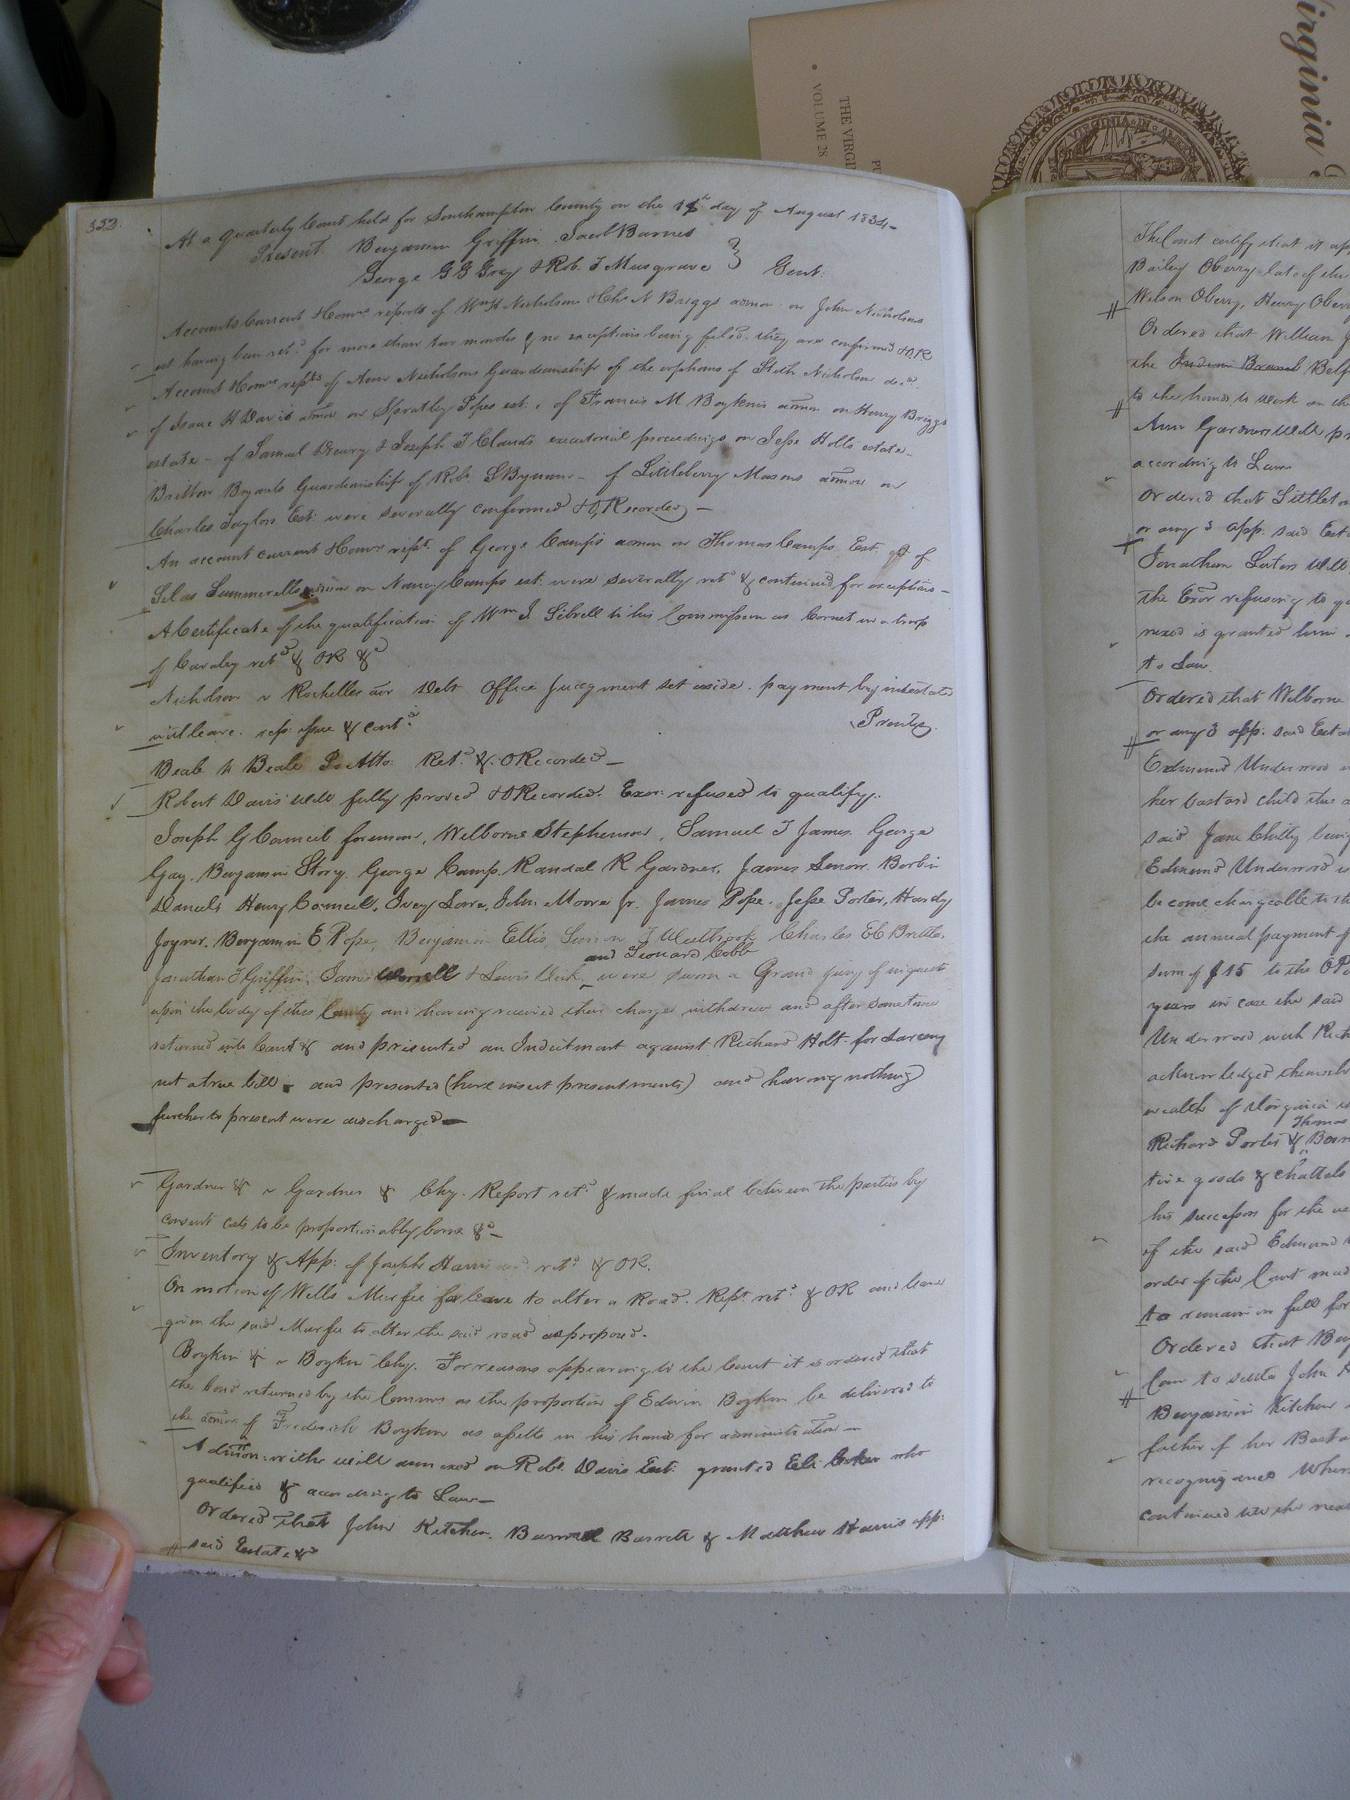 Virginia
THE VIRGI
VOLUME 28
VIRGINIA
332
At a quarterly Court held for Southampton County on the day of August 1834
Present. Benjamin Griffin. Jacob Barnes
George G G Gray & Rob. T Musgrave } Gent.
Accounts Current & Comrs reports of Wm H Nicholson & Chs N Briggs admor on John Nicholson
est having been retd for more than two months & no exceptions being filed. they are confirmed & OR
Account & Comrs repts of Ann Nicholsons Guardianship of the orphans of Nicholson decd.
of Isaac H Davis admor on Spratley Popes est. of Francis M Boykins admor on Henry Briggs
estate - of Samuel Drewry & Joseph T Clauds executorial proceedings on Jesse Holts estate -
Britton Bryants Guardianship of Rob. S Bynum - of Littleberry Masons admor on
Charles Taylors Est: were severally confirmed & O,Recorded -
An account current & Comrs rept. of George Camps admor on Thomas Camps Est. of
Silas Summerells admor on Nancy Camps est: were severally retd & continued for exceptions -
A Certificate of the qualification of Wm J. Sebrell to his Commission as Cornet in a troop
of Cavalry retd & OR &c
Nicholson v Rochelles Debt Office Judgment set aside. payment by intestate
with leave. rep: issue & contd
Beale to Beale Retd. & ORecorded -
Robert Davis Will fully proved & ORecorded. Exor refused to qualify.
Joseph G Council foreman, Welborne Stephenson, Samuel T James. George
Gay. Benjamin Story. George Camp. Randal R Gardner, James
Daniels Henry Council, Ivey Lowe. John Moore Jr. James Pope. Jesse Porter, Hardy
Joyner. Benjamin E Pope, Benjamin Ellis, J Westbrook Charles Britton,
and Leonard Cobb
Jonathan T Griffin, James Worrell & Lewis were sworn a Grand jury of inquest
upon the body of this County and having received their charge withdrew and after sometime
returned into Court & and presented an Indictment against Richard Holt for Larceny
not a true bill. and presented (here insert presentments) and having nothing
further to present were discharged -
Gardner & v Gardner & Chy. Report retd & made final between the parties by
consent costs to be proportionably borne &c -
Inventory & App: of Joseph retd & OR.
On motion of Wells Murfee for leave to alter a Road. Rept. retd & OR and leave
given the said Murfee to alter the said road as proposed.
Boykin & v Boykin Chy. For reasons appearing to the Court it is ordered that
the bond returned by the Commrs as the proportion of Edwin Boykin be delivered to
the admor of Frederick Boykin as assetts in his hands for administration -
Admon: with the will annexed on Robt. Davis Est: granted Eli who
qualified & according to Law -
Ordered that John Kitchen. Burwell Barrett & Matthew Harris app:
said Estate &c
The Court certify that it ap
Bailey Oberry late of this
Wilson Oberry, Henry Oberr
Ordered that William
the Belf
to the hands to work on th
Ann Gardners Will pr
according to Law
Ordered that Littleton
or any 3 app. said Est
Jonathan Will
the Exor refusing to q
nexed is granted him
to Law.
Ordered that Welborne
or any 3 app. said Est
Edmund Underwood
her bastard child
said Jane Chitty being
Edmund Underwood
become chargeable to th
the annual payment of
sum of $15 to the OP
years in case the said
Underwood with Rich
acknowledged themselv
wealth of Virginia
Thomas
Richard Porter & Bar
tive goods & chattels
his successors for the us
of the said Edmund
order of the Court mad
to remain in full for
Ordered that Ben
law to settle John
Benjamin Kitchen
father of her Basta
recognizance
continued till the next